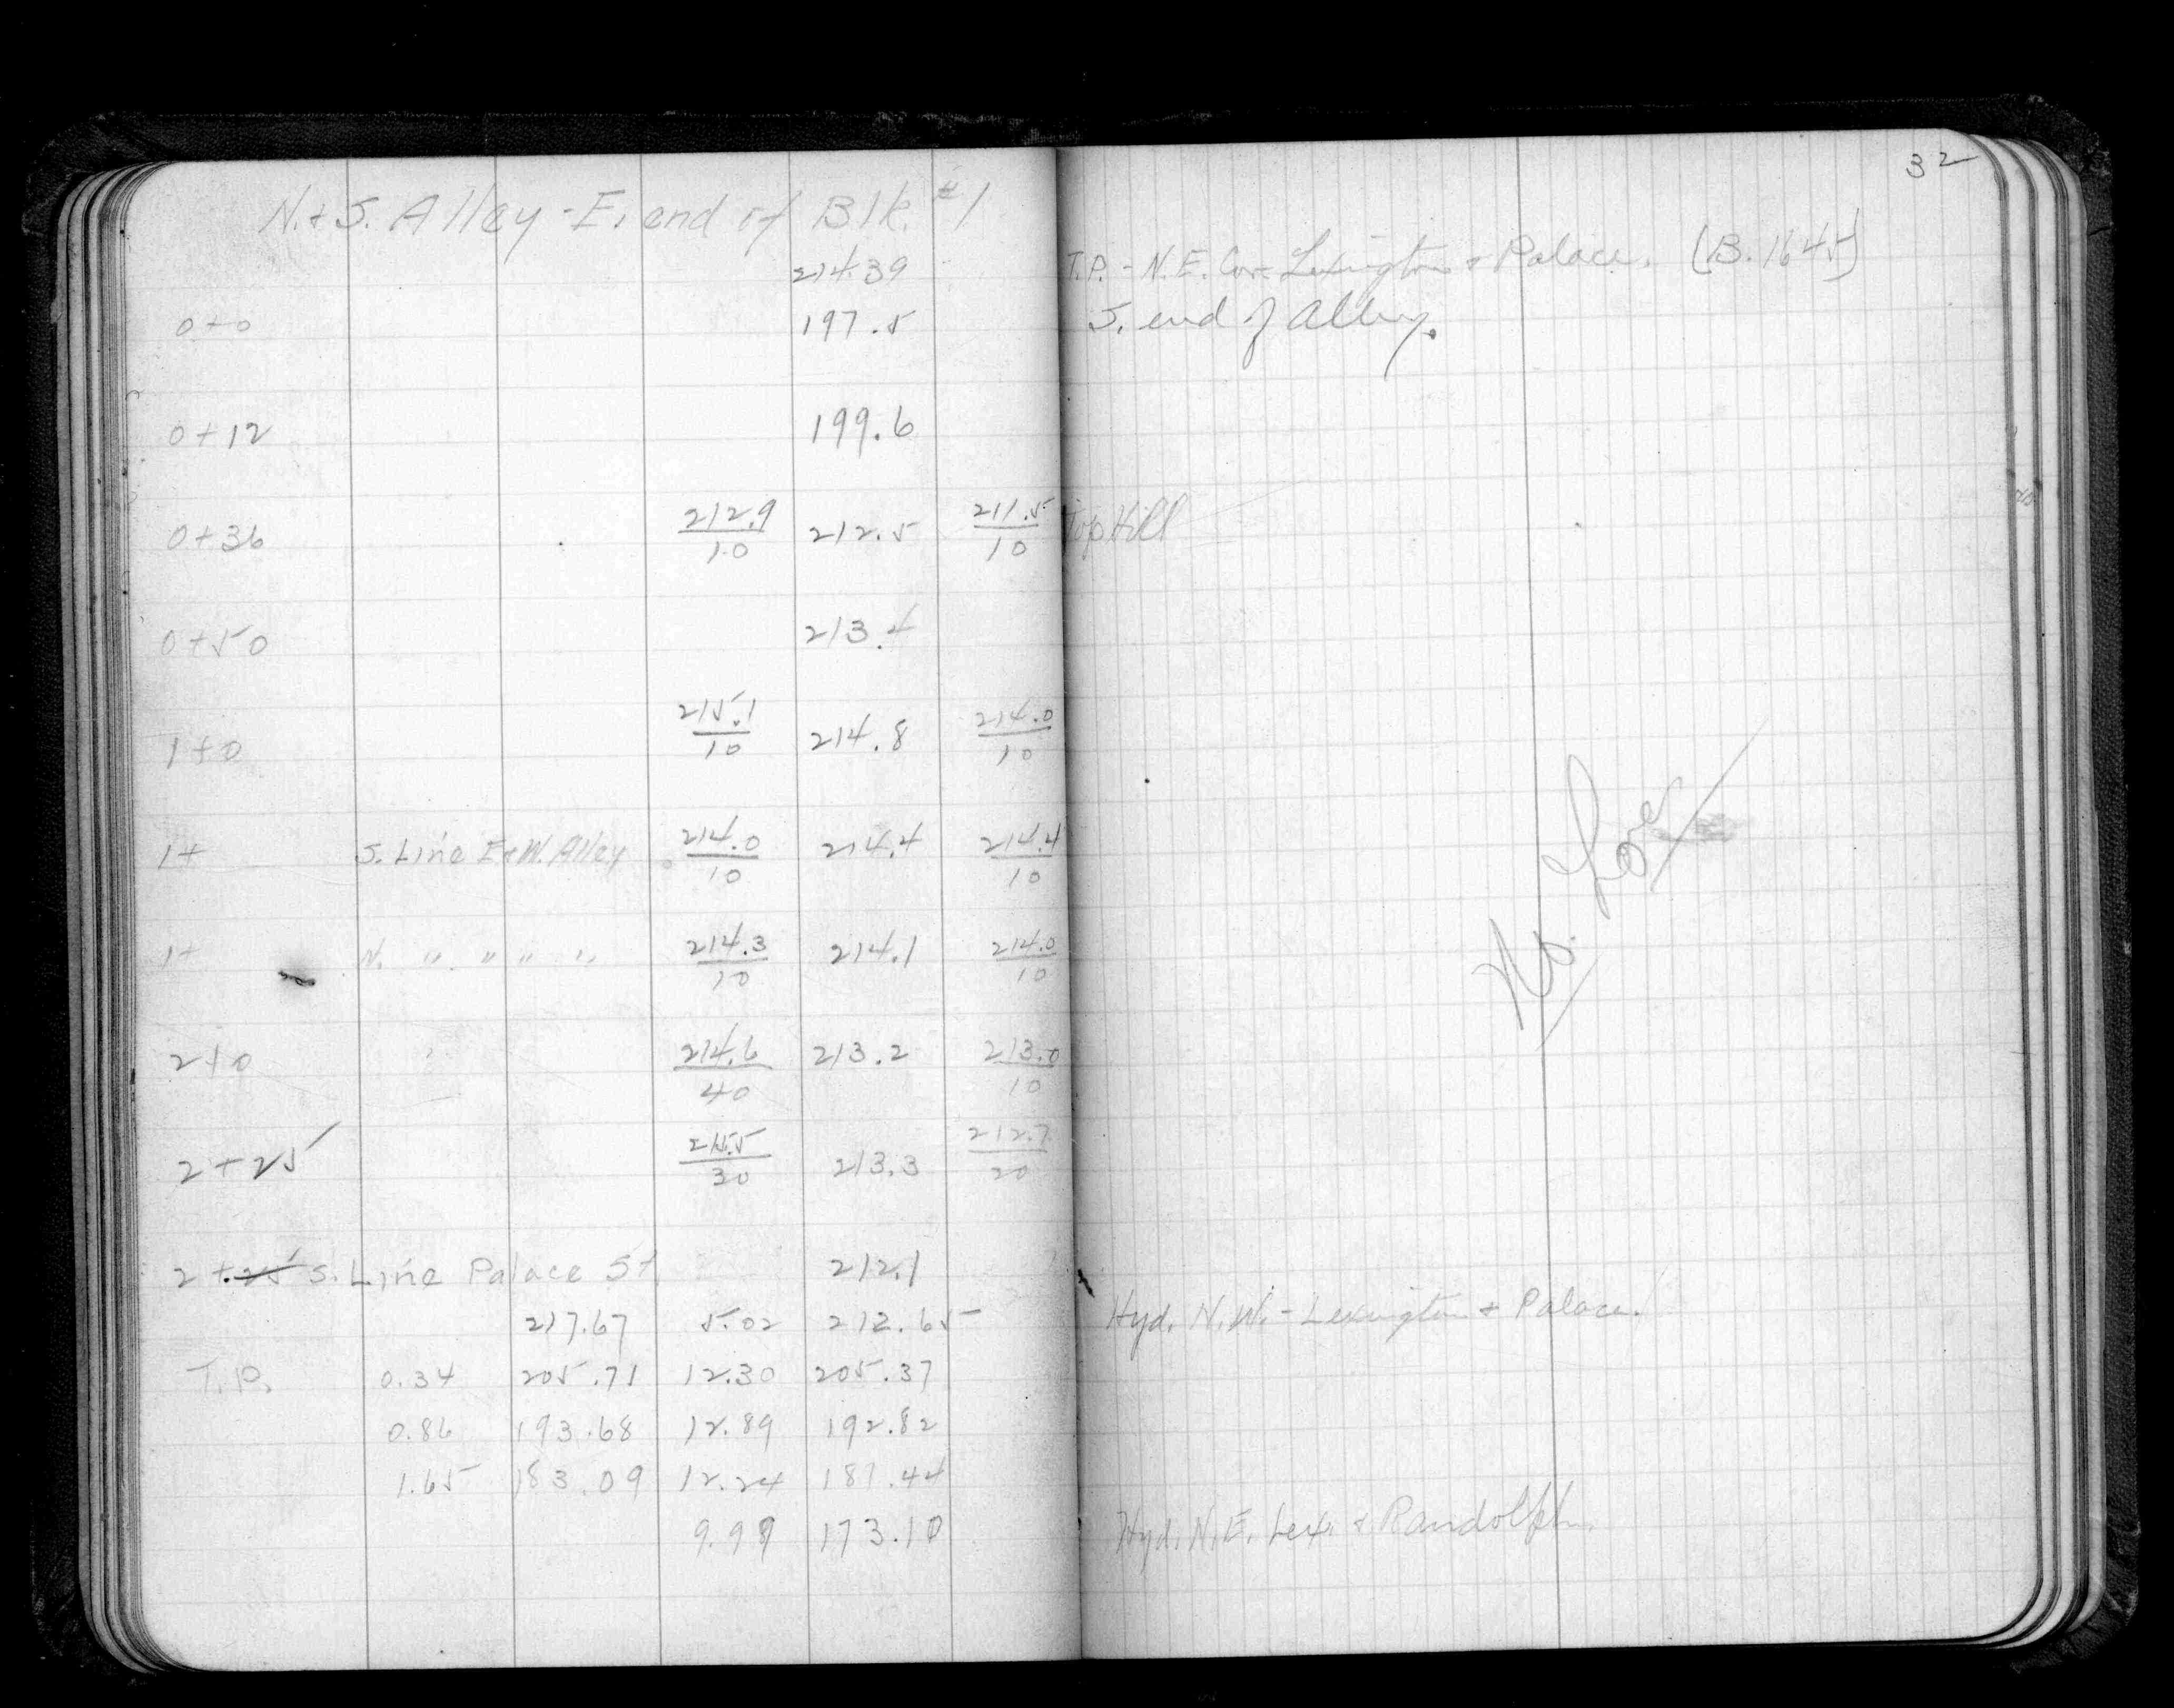 32
N. & S. Alley - E. end of Blk. #1
214.39 T.P. - N.E. Cor. Lexington & Palace. (B. 1645)
0+0 197.5 S. end of Alley.
0+12 199.6
0+36 212.9/10 212.5 211.5/10 Top Hill
0+50 213.4
1+0 215.1/10 214.8 214.0/10
1+ S. Line E & W. Alley 214.0/10 214.4 214.4/10
1+ N. " " " " 214.3/10 214.1 214.0/10
2+0 214.6/40 213.2 213.0/10
2+25 215.5/30 213.3 212.7/20
2+25 S. Line Palace St. 212.1
217.67 5.02 212.65 Hyd. N.W. - Lexington & Palace.
T.P. 0.34 205.71 12.30 205.37
0.86 193.68 12.89 192.82
1.65 183.09 12.24 181.44
9.99 173.10 Hyd. N.E. Lex. & Randolph.